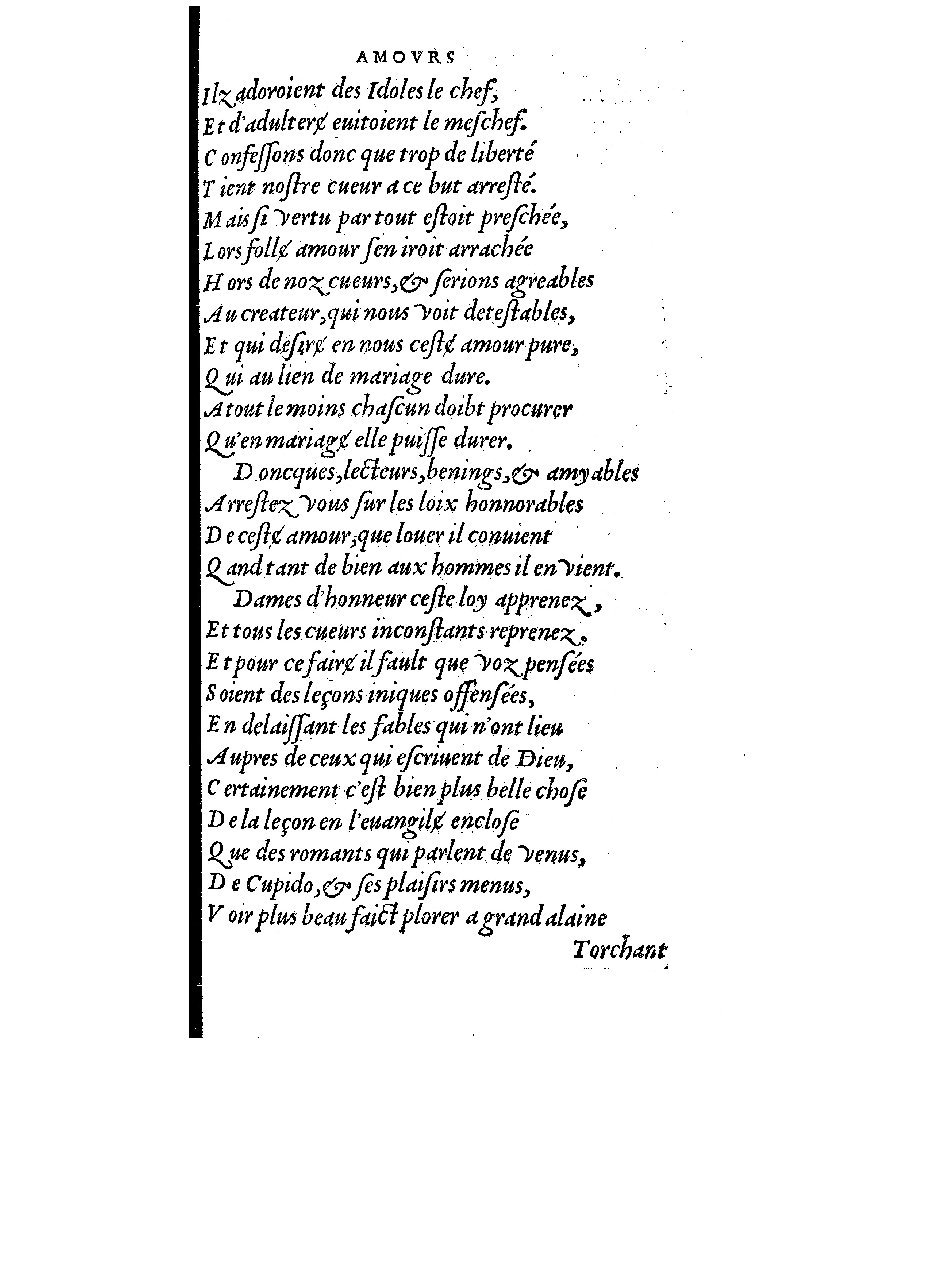 AMOVRS
Ilz adoroient des Idoles le chef,
Et d'adulterɇ euitoient le meſchef.
Confeſſons donc que trop de liberté
Tient noſtre cueur a ce but arreſté.
Mais ſi vertu par tout eſtoit preſchée,
Lors follɇ amour ſen iroit arrachée
Hors de noz cueurs, & ſerions agreables
Au createur, qui nous voit deteſtables,
Et qui deſirɇ en nous ceſtɇ amour pure,
Qui au lien de mariage dure.
A tout le moins chaſcun doibt procurer
Qu'en mariagɇ elle puiſſe durer.
Doncques, lecteurs, benings, & amyables
Arreſtez vous ſur les loix honnorables
De ceſtɇ amour, que louer il conuient
Quand tant de bien aux hommes il en vient.
Dames d'honneur ceſte loy apprenez,
Et tous les cueurs inconſtants reprenez.
Et pour ce fairɇ il fault que voz penſées
Soient des leçons iniques offenſées,
En delaiſſant les fables qui n'ont lieu
Aupres de ceux qui eſcriuent de Dieu,
Certainement c'eſt bien plus belle choſe
De la leçon en l'euangilɇ encloſe
Que des romants qui parlent de venus,
De Cupido, & ſes plaiſirs menus,
Voir plus beau faict plorer a grand alaine
Torchant